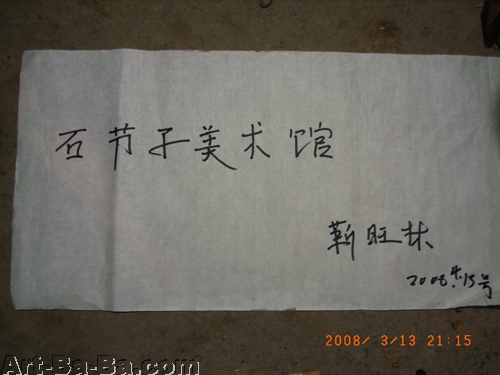 石节子美术馆
靳旺林
2008.4.13号
2008/ 3/13 21:15
Art-Ba-Ba.com